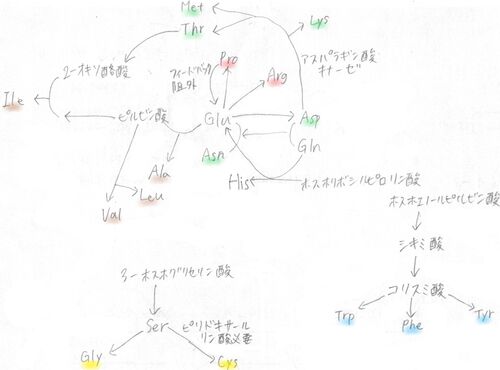 Met
Thr
Lys
アスパラギン酸
キナーゼ
2-オキソ酪酸
フィードバック
阻害
Pro
Arg
Ile
ピルビン酸
Glu
Asp
Asn
Gln
Ala
Leu
Val
His
ホスホリボシルピロリン酸
ホスホエノールピルビン酸
シキミ酸
コリスミ酸
Trp
Phe
Tyr
3-ホスホグリセリン酸
Ser
ピリドキサール
リン酸必要
Gly
Cys